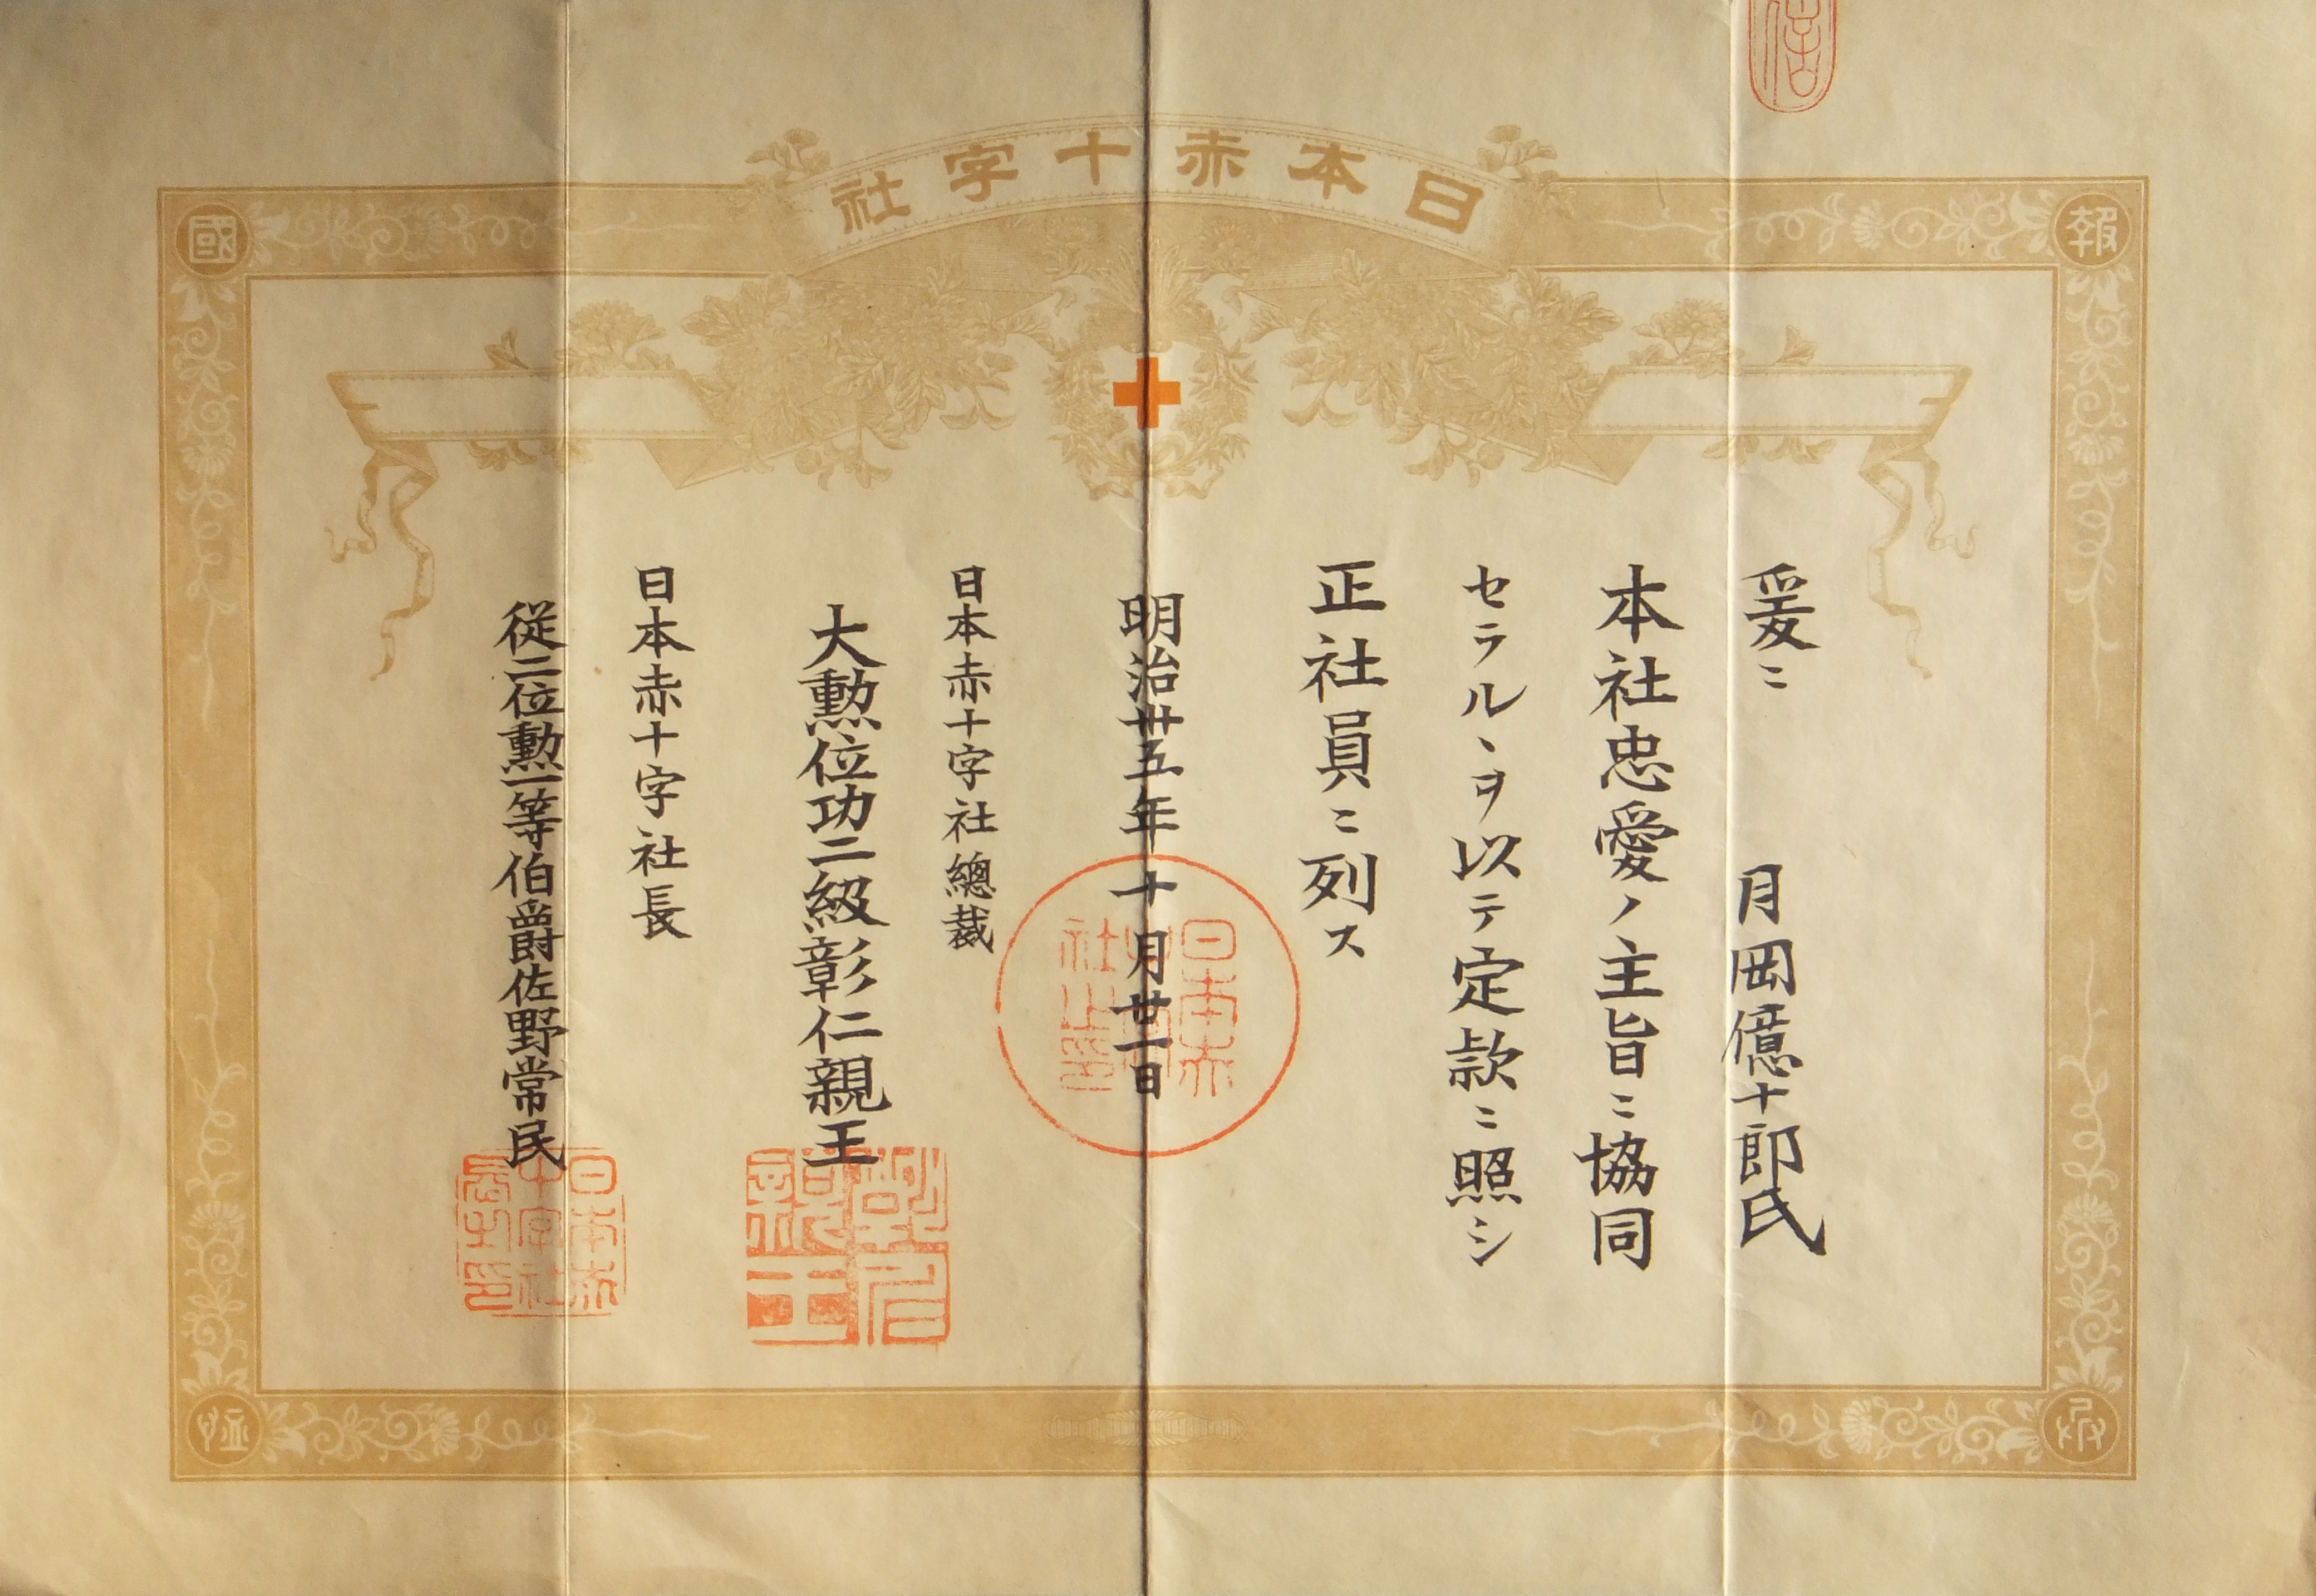 日本赤十字社
報
國
恤
爰ニ
月岡億十郎氏
本社忠愛ノ主旨ニ協同
セラルヽヲ以テ定款ニ照シ
正社員ニ列ス
明治卅五年十月廿一日
日本赤十字社總裁
大勲位功二級彰仁親王
日本赤十字社長
従二位勲一等伯爵佐野常民
彰仁親王
日本赤十字社長之印